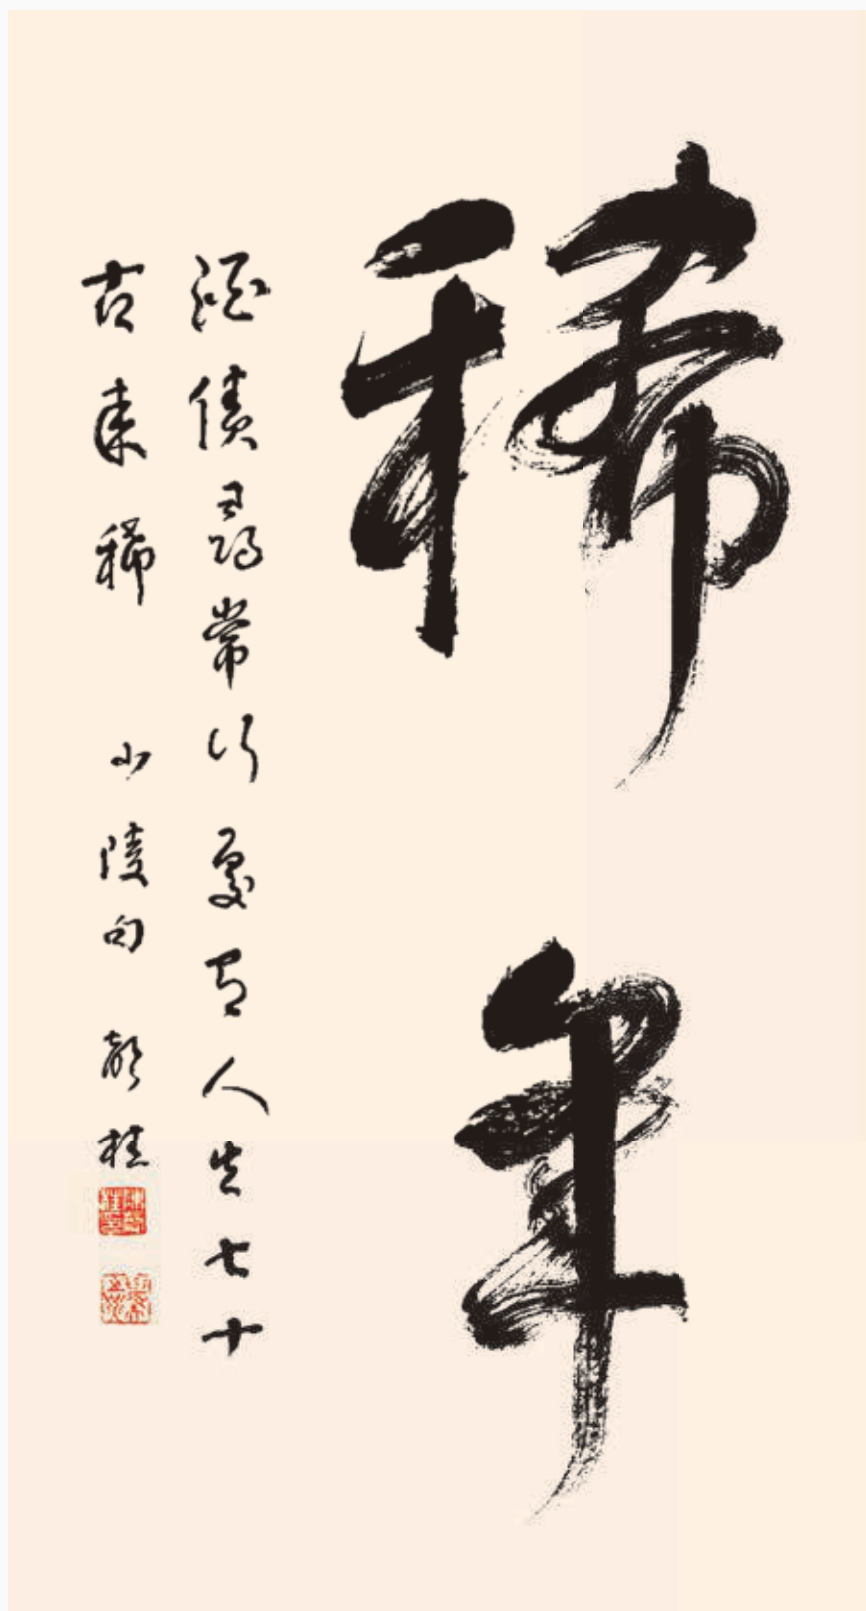 稀年
酒債尋常行處有人生七十
古來稀 少陵句 桂